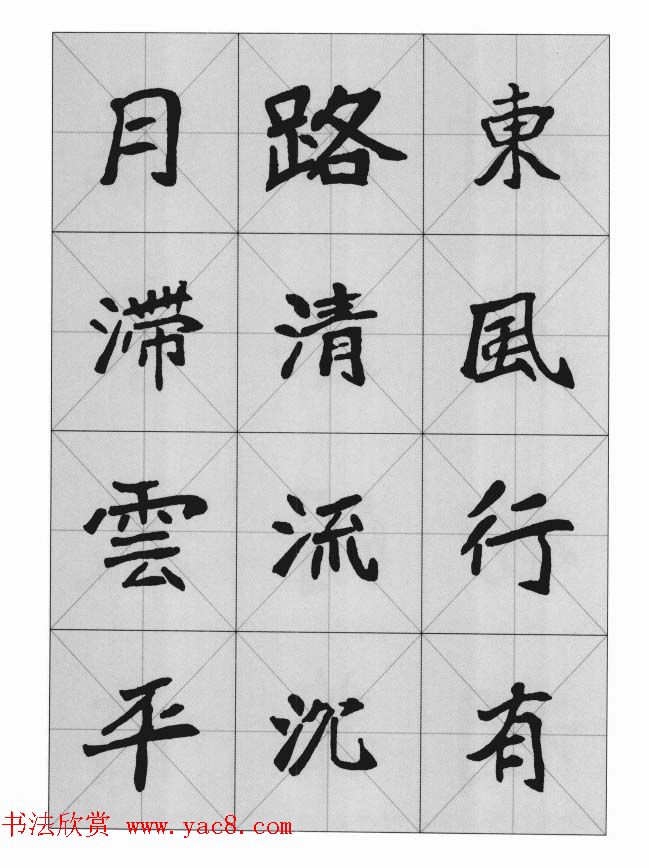 東風行有
路清流沉
月滯雲平
书法欣赏 www.yac8.com